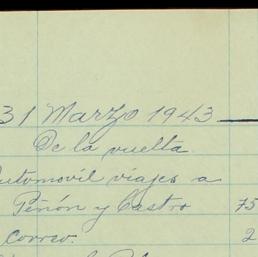 31 Marzo 1943
De la vuelta.
utomovil viajes a
Piñón y Castro 75
correo. 2